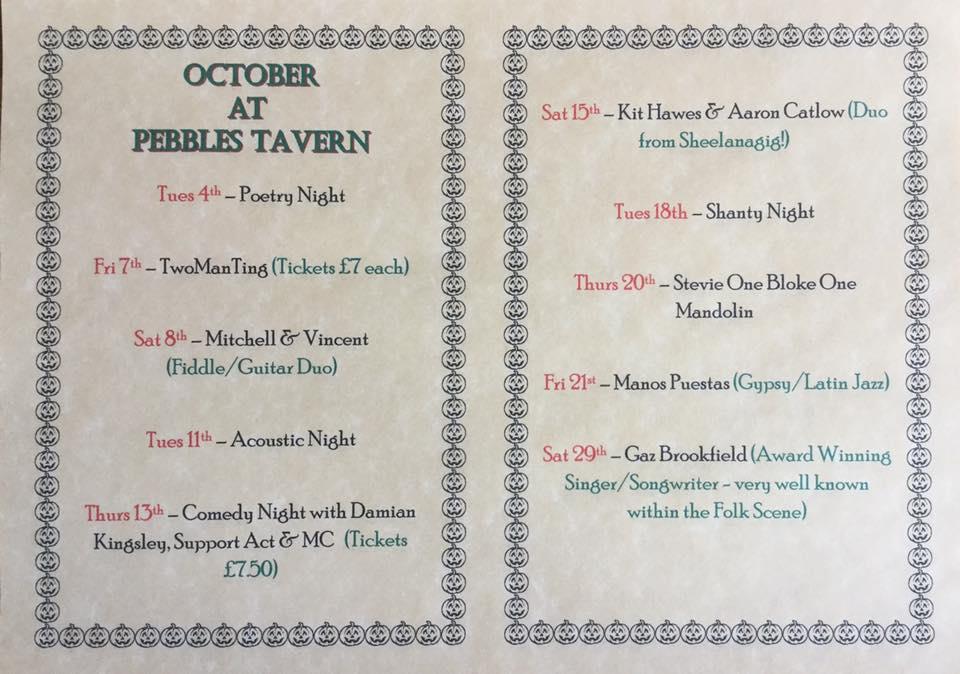 OCTOBER
AT
PEBBLES TAVERN
Tues 4th – Poetry Night
Fri 7th – TwoManTing (Tickets £7 each)
Sat 8th – Mitchell & Vincent
(Fiddle/Guitar Duo)
Tues 11th – Acoustic Night
Thurs 13th – Comedy Night with Damian
Kingsley, Support Act & MC (Tickets
£7.50)
Sat 15th – Kit Hawes & Aaron Catlow (Duo
from Sheelanagig!)
Tues 18th – Shanty Night
Thurs 20th – Stevie One Bloke One
Mandolin
Fri 21st – Manos Puestas (Gypsy/Latin Jazz)
Sat 29th – Gaz Brookfield (Award Winning
Singer/Songwriter - very well known
within the Folk Scene)